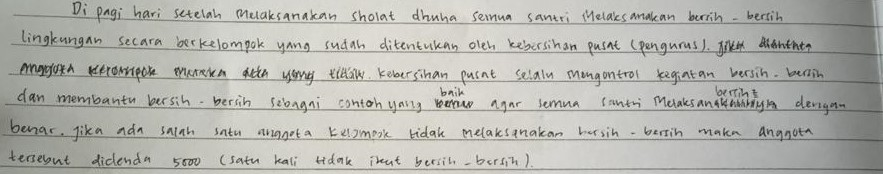 Di pagi hari setelah melaksanakan sholat dhuha semua santri melaksanakan bersih - bersih
lingkungan secara berkelompok yang sudah ditentukan oleh kebersihan pusat (pengurus).
kebersihan pusat selalu mengontrol kegiatan bersih - bersih
dan membantu bersih - bersih sebagai contoh yang baik agar semua santri melaksanakan bersih² dengan
benar. Jika ada salah satu anggota kelompok tidak melaksanakan bersih - bersih maka anggota
tersebut didenda 5000 (satu kali tidak ikut bersih - bersih).